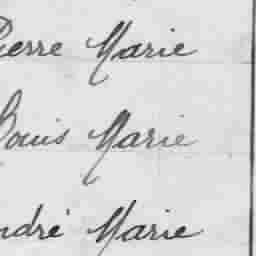 Pierre Marie
Louis Marie
André Marie